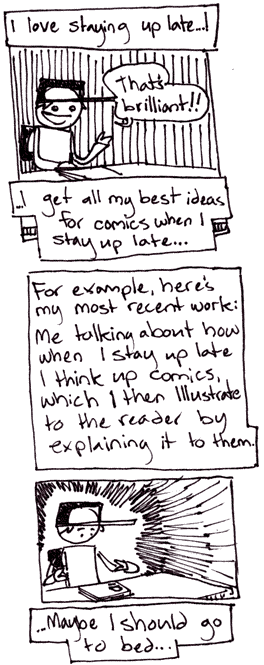 I love staying up late...!
That's
brilliant!!
...I get all my best ideas
for comics when I
stay up late...
For example, here's
my most recent work:
Me talking about how
when I stay up late
I think up comics,
which I then Illustrate
to the reader by
explaining it to them.
...Maybe I should go
to bed...